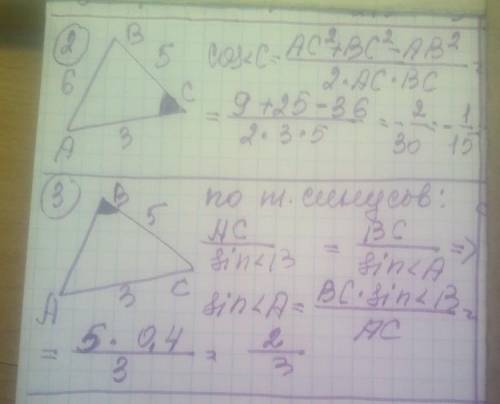 2
B
6
5
C
A
3
cos<C = AC²+BC²-AB² / 2·AC·BC =
= 9+25-36 / 2·3·5 = -2/30 = -1/15
3
B
5
A
3
C
по т. синусов:
AC / sin<B = BC / sin<A =>
sin<A = BC·sin<B / AC =
= 5·0,4 / 3 = 2/3